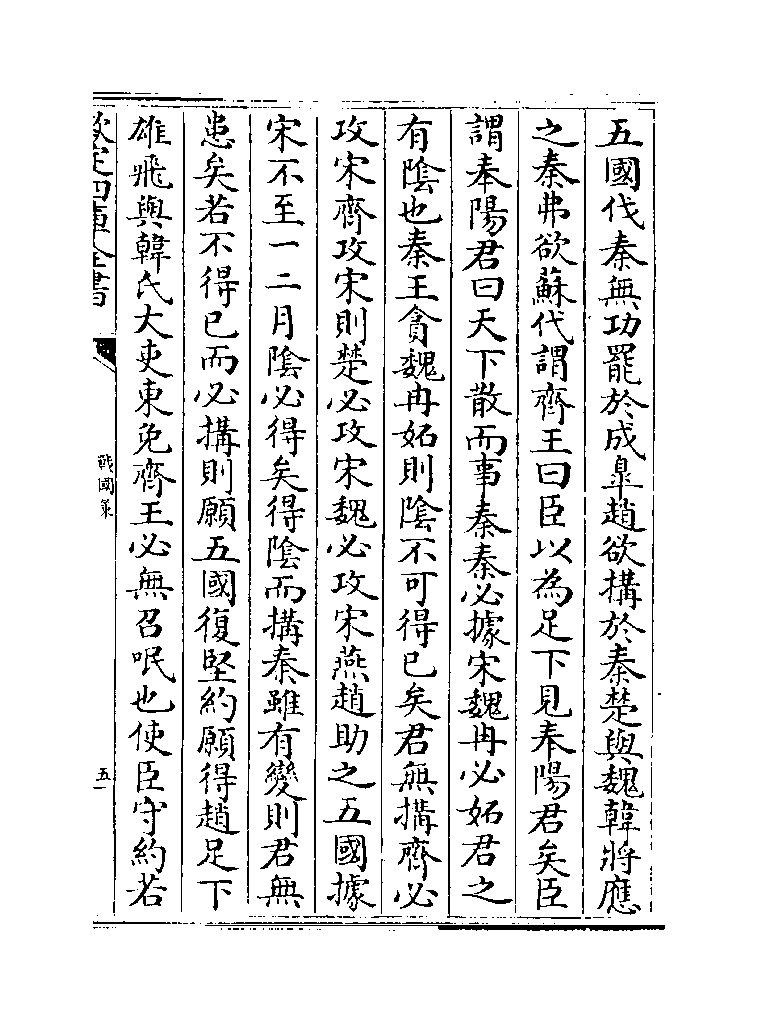 五國伐秦無功罷於成臯趙欲搆於秦楚與魏韓將應
之秦弗欲蘇代謂齊王曰臣以為足下見奉陽君矣臣
謂奉陽君曰天下散而事秦秦必據宋魏冉必妬君之
有陰也秦王貪魏冉妬則陰不可得已矣君無搆齊必
攻宋齊攻宋則楚必攻宋魏必攻宋燕趙助之五國據
宋不至一二月陰必得矣得陰而搆秦雖有變則君無
患矣若不得已而必搆則願五國復堅約願得趙足下
雄飛與韓氏大吏東免齊王必無召呡也使臣守約若
欽定四庫全書
戰國策
五一